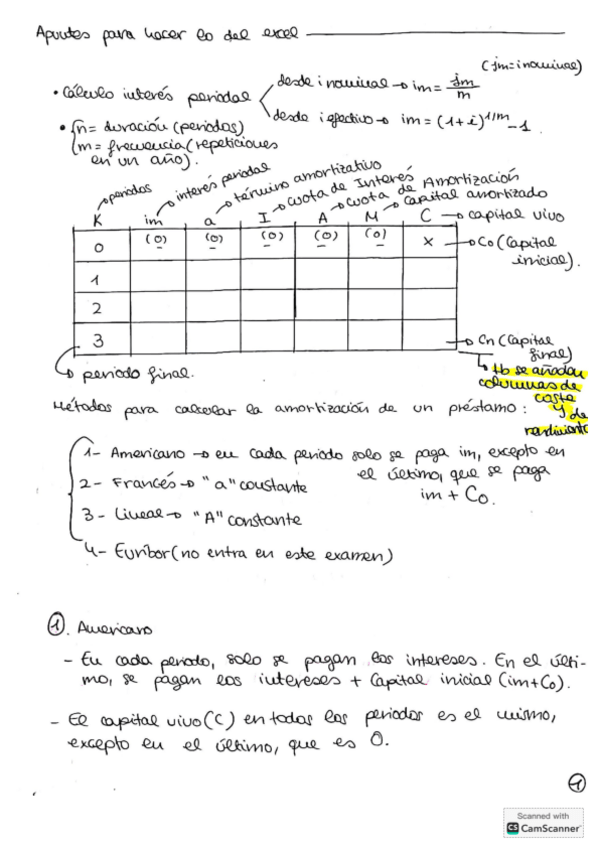 Apuntes para hacer lo del excel
(jm=i nominal)
• Cálculo interés periodal
desde i nominal → im = jm/m
desde i efectivo → im = (1+i)^1/m - 1
• n = duración (periodos)
m = frecuencia (repeticiones
en un año).
→ periodos
→ interés periodal
→ término amortizativo
→ cuota de Interés
→ cuota de Amortización
→ capital amortizado
K im a I A M C → capital vivo
0 (0) (0) (0) (0) (0) x → Co (Capital
inicial).
1
2
3 → Cn (Capital
final)
→ periodo final.
→ tb se añaden
columnas de
coste
y de
rendimiento
Métodos para calcular la amortización de un préstamo:
1- Americano → en cada periodo solo se paga im, excepto en
el último, que se paga
im + Co.
2- Francés → "a" constante
3- Lineal → "A" constante
4- Euríbor (no entra en este examen)
1. Americano
- En cada periodo, solo se pagan los intereses. En el últi-
mo, se pagan los intereses + Capital inicial (im+Co).
- El capital vivo (C) en todos los periodos es el mismo,
excepto en el último, que es 0.
1
Scanned with
CS CamScanner